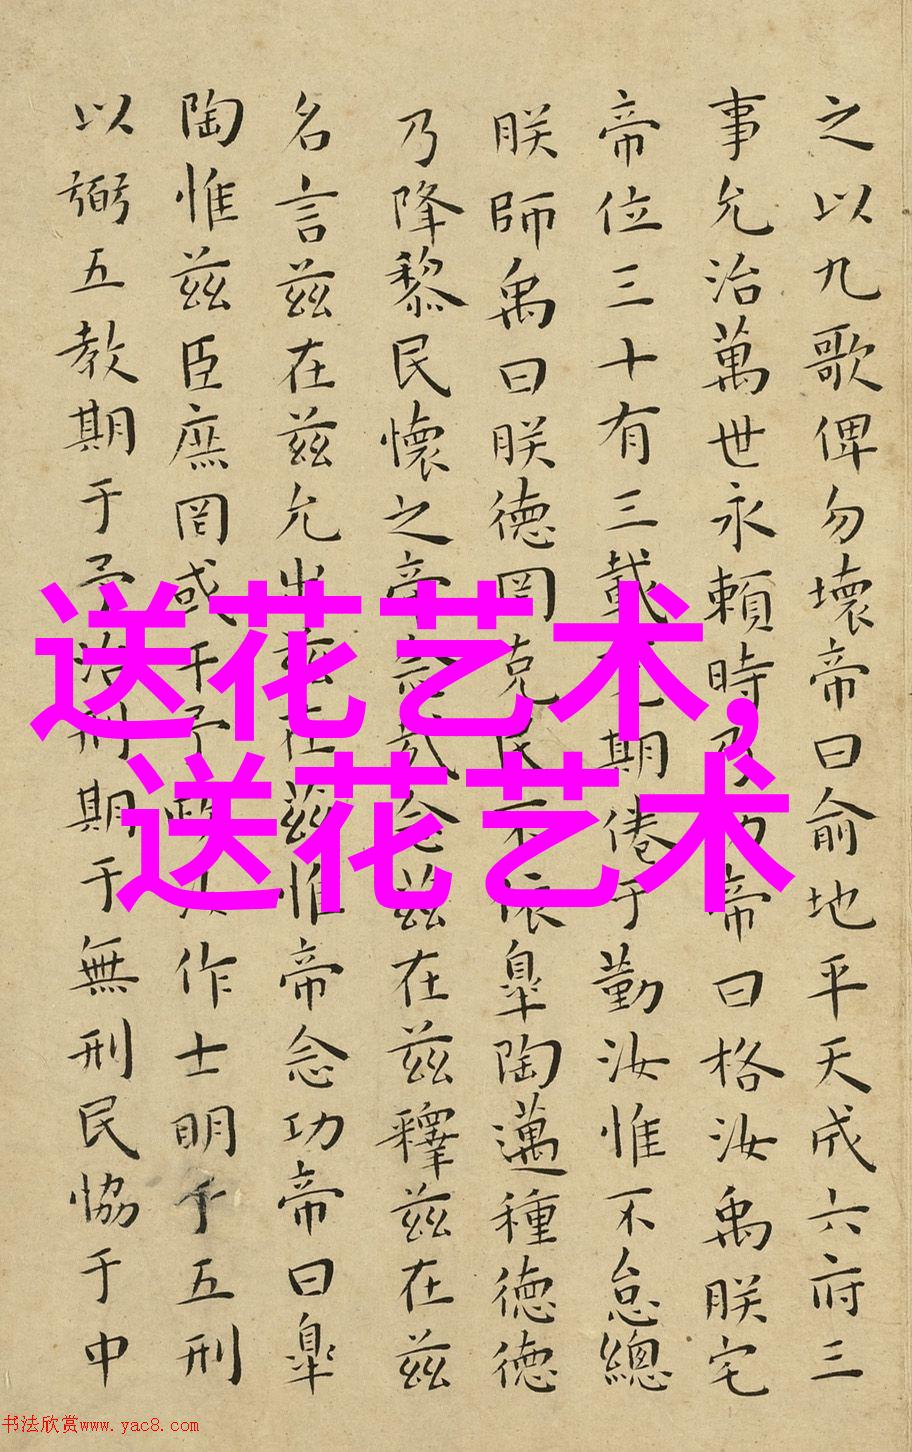 之以九歌俾勿壞帝曰俞地平天成六府三
事允治萬世永賴時乃功帝曰格汝禹朕宅
帝位三十有三載期倦于勤汝惟不怠總
朕師禹曰朕德罔克民不依皐陶邁種德德
乃降黎民懷之帝念哉念茲在茲釋茲在茲
名言茲在茲允出茲在茲惟帝念功帝曰皐
陶惟茲臣庶罔或干予政汝作士明于五刑
以弼五教期于予治刑期于無刑民恊于中
送花艺术,
送花艺术
书法欣赏www.yac8.com